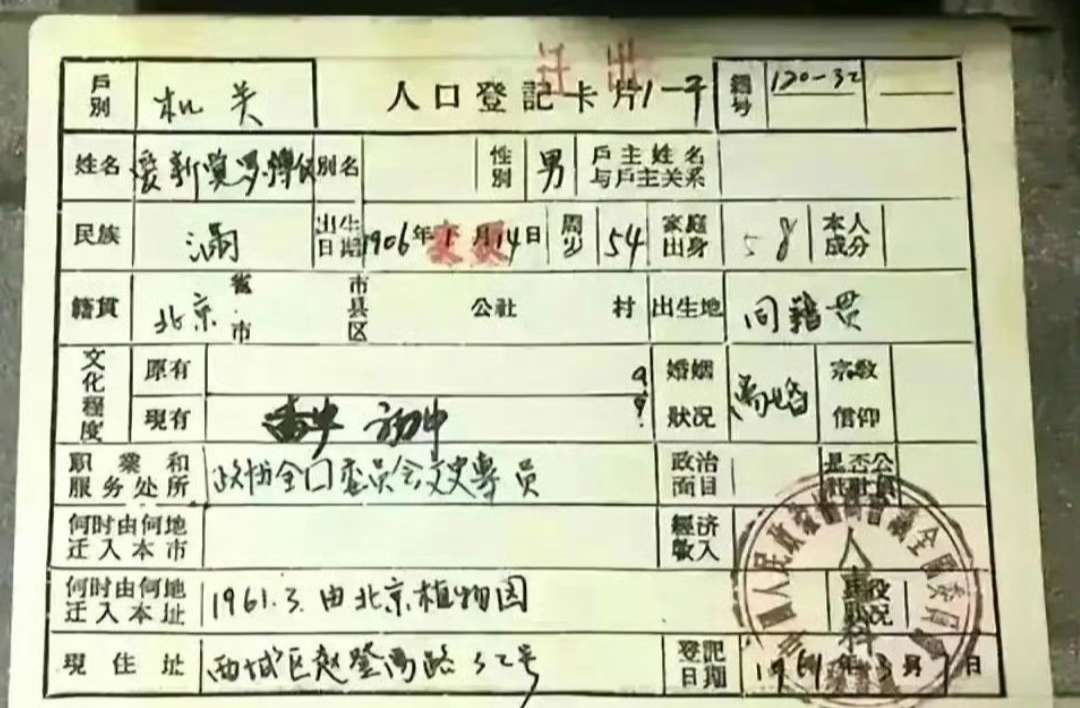 迁出
戶別 机关 人口登記卡片 1-平 編号 120-32
姓名 爱新覺罗·溥仪 別名 性別 男 戶主姓名与戶主关系
民族 滿 出生日期 1906年1月14日 变更 周岁 54 家庭出身 58 本人成分
籍貫 北京 省市 市县区 公社 村 出生地 同籍贯
文化程度 原有 婚姻狀况 离婚 宗敎信仰
現有 初中
职業和服务处所 政协全囗委员会文史專员 政治面目 是否公社社員
何时由何地迁入本市 經济收入
何时由何地迁入本址 1961.3.由北京植物园
現住址 西城区赵登禹路32号 登記日期 1961年3月 日
人民政治協商會議全國委員會
人事科